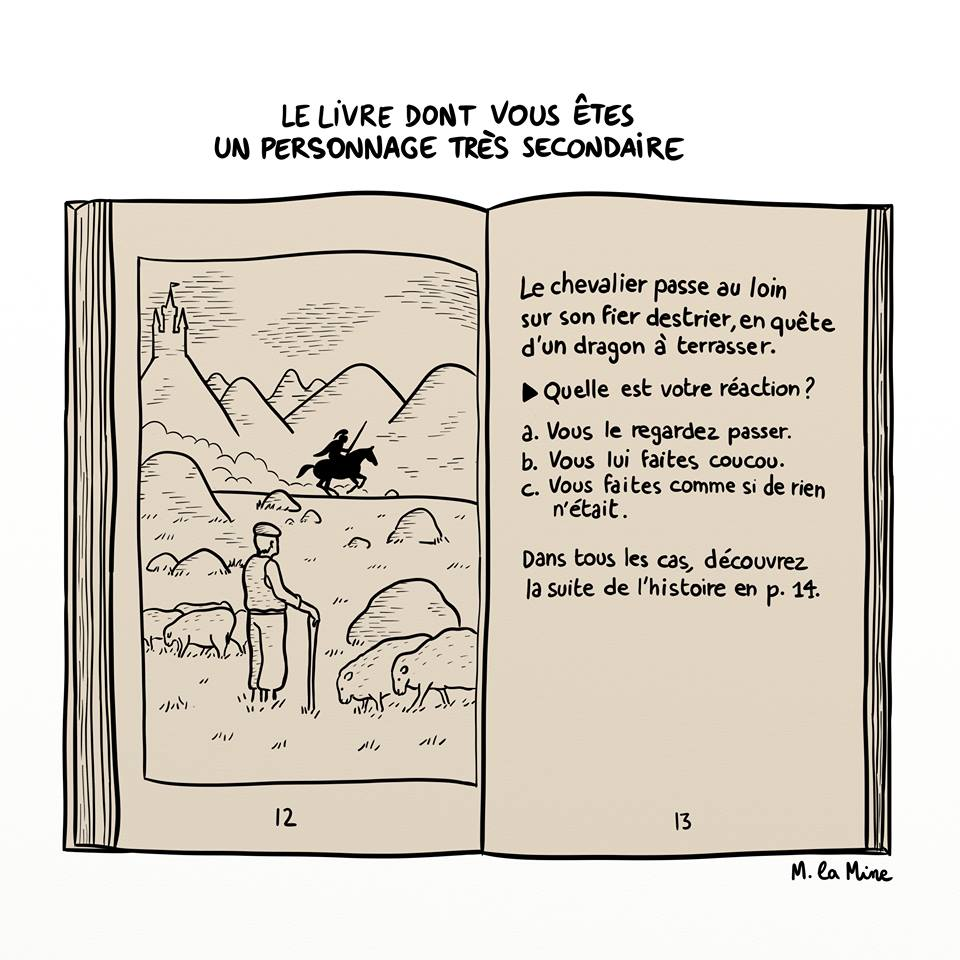 LE LIVRE DONT VOUS ÊTES
UN PERSONNAGE TRÈS SECONDAIRE
Le chevalier passe au loin
sur son fier destrier, en quête
d'un dragon à terrasser.
▶ Quelle est votre réaction ?
a. Vous le regardez passer.
b. Vous lui faites coucou.
c. Vous faites comme si de rien
n'était.
Dans tous les cas, découvrez
la suite de l'histoire en p. 14.
12
13
M. la Mine